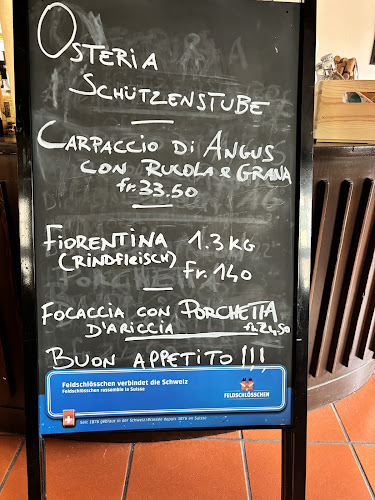 OSTERIA
SCHÜTZENSTUBE
CARPACCIO Di ANGUS
CON RUCOLA & GRANA
fr. 33.50
FIORENTINA 1.3 KG
(RINDFLEISCH) Fr. 140
FOCACCIA CON PORCHETTA
D'ARICCIA fr. 24,50
BUON APPETITO!!!
Feldschlösschen verbindet die Schweiz
Feldschlösschen rassemble la Suisse
FELDSCHLÖSSCHEN
Seit 1876 gebraut in der Schweiz • Brassée depuis 1876 en Suisse